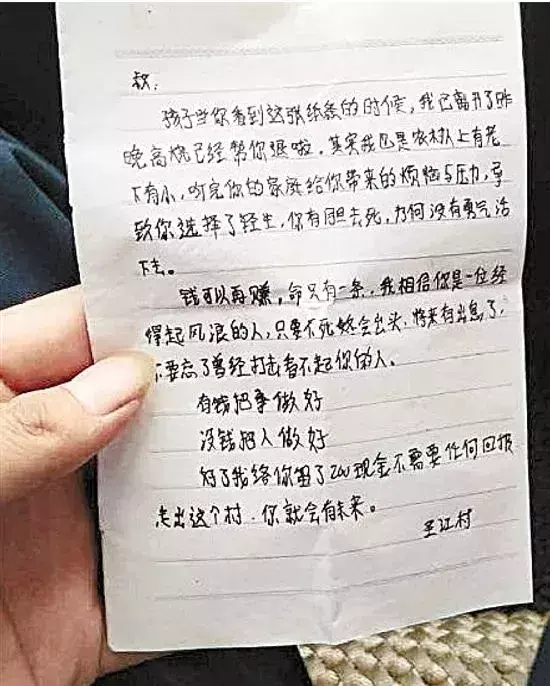 孩子当你看到这张纸条的时候，我已离开了昨
晚高烧已经帮你退啦，其实我也是农村人上有老
下有小，听完你的家庭给你带来的烦恼与压力，导
致你选择了轻生，你有胆去死，为何没有勇气活
下去。
钱可以再赚，命只有一条，我相信你是一位经
得起风浪的人，只要不死终会出头，将来有出息了，
不要忘了曾经打击看不起你的人。
有钱把事做好
没钱把人做好
对了我给你留了200现金不需要任何回报
走出这个村，你就会有未来。
江村